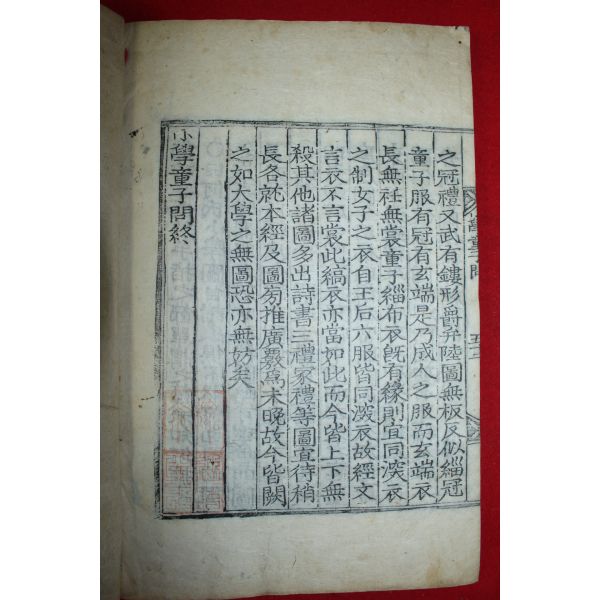 學童子問
五十
之冠禮又武有鏤形爵弁陸圖無板反似緇冠
童子服有冠有玄端是乃成人之服而玄端衣
長無衽無裳童子緇布衣旣有緣則宜同深衣
之制女子之衣自王后六服皆同深衣故經文
言衣不言裳此縞衣亦當如此而今皆上下無
殺其他諸圖多出詩書三禮家禮等圖宜待稍
長各就本經及圖旁推廣發爲未晚故今皆闕
之如大學之無圖恐亦無妨矣
小學童子問終